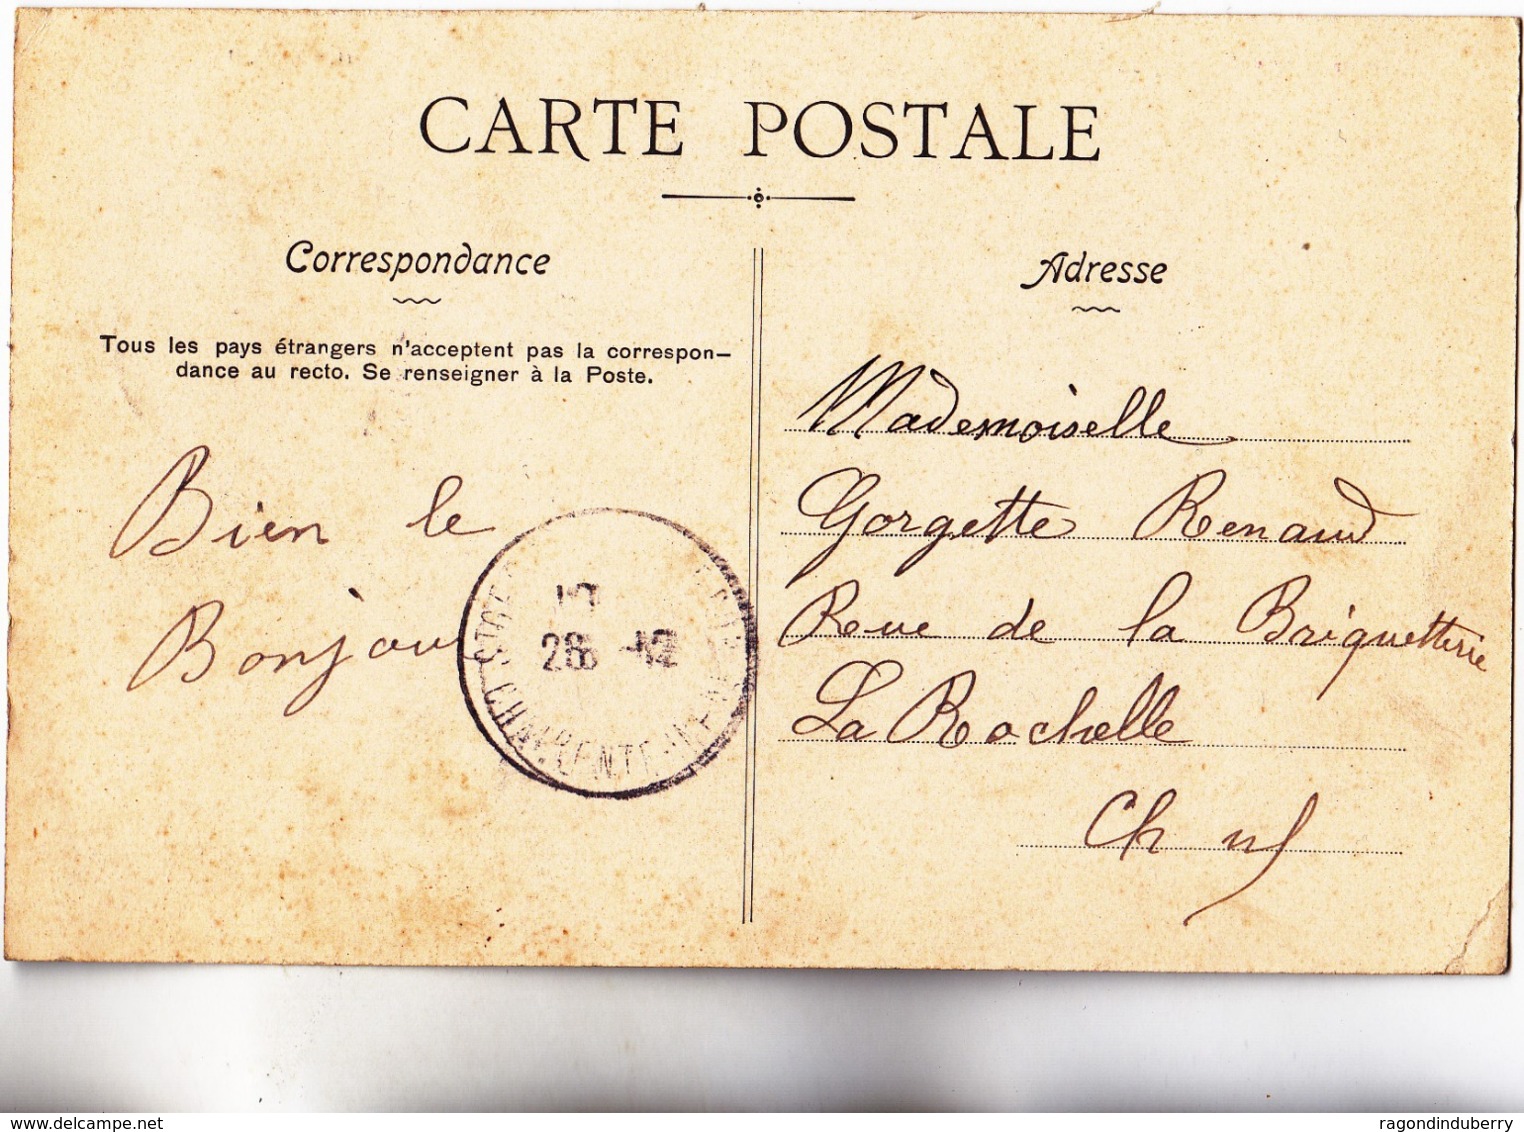 CARTE POSTALE
Correspondance
Tous les pays étrangers n'acceptent pas la correspon-
dance au recto. Se renseigner à la Poste.
Bien le
Bonjour
28 -12
CHARENTE-INFRE
Adresse
Mademoiselle
Gorgette Renaud
Rue de la Briquetterie
La Rochelle
Ch inf
www.delcampe.net
ragondinduberry